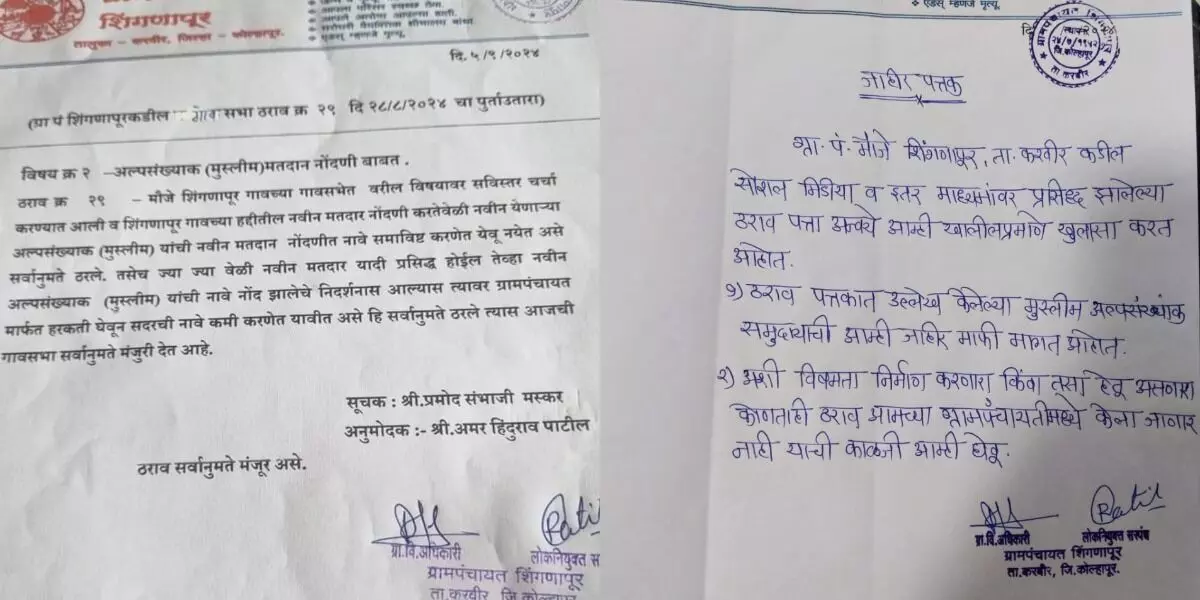 शिंगणापूर
तालुका - करवीर, जिल्हा - कोल्हापूर.
एडस् म्हणजे मृत्यू.
दि. ५/९/२०२४
(ग्रा पं शिंगणापूरकडील गाव सभा ठराव क्र २९ दि २८/८/२०२४ चा पुर्ताउतारा)
विषय क्र २ -अल्पसंख्याक (मुस्लीम)मतदान नोंदणी बाबत .
ठराव क्र २९ - मौजे शिंगणापूर गावच्या गावसभेत वरील विषयावर सविस्तर चर्चा
करण्यात आली व शिंगणापूर गावच्या हद्दीतील नवीन मतदार नोंदणी करतेवेळी नवीन येणाऱ्या
अल्पसंख्याक (मुस्लीम) यांची नवीन मतदान नोंदणीत नावे समाविष्ट करणेत येवू नयेत असे
सर्वानुमते ठरले. तसेच ज्या ज्या वेळी नवीन मतदार यादी प्रसिद्ध होईल तेव्हा नवीन
अल्पसंख्याक (मुस्लीम) यांची नावे नोंद झालेचे निदर्शनास आल्यास त्यावर ग्रामपंचायत
मार्फत हरकती घेवून सदरची नावे कमी करणेत यावीत असे हि सर्वानुमते ठरले त्यास आजची
गावसभा सर्वानुमते मंजुरी देत आहे.
सूचक : श्री.प्रमोद संभाजी मस्कर
अनुमोदक :- श्री.अमर हिंदुराव पाटील
ठराव सर्वानुमते मंजूर असे.
Patil
ग्रा.वि.अधिकारी लोकनियुक्त स
ग्रामपंचायत शिंगणापूर
ता.करवीर, जि.कोल्हापूर.
एडस् म्हणजे मृत्यू.
स्थापना
२४/७/१९५२
जि.कोल्हापूर
ता. करवीर
जाहीर पत्रक
ग्रा. पं. मौजे शिंगणापूर, ता. करवीर कडील
सोशल मिडीया व इतर माध्यमांवर प्रसिध्द झालेल्या
ठराव पत्रा अन्वये आम्ही खालीलप्रमाणे खुलासा करत
आहोत.
१) ठराव पत्रकात उल्लेख केलेल्या मुस्लीम अल्पसंख्यांक
समुदायाची आम्ही जाहीर माफी मागत आहोत.
२) अशी विषमता निर्माण करणारा किंवा तसा हेतू असणारा
कोणताही ठराव आमच्या ग्रामपंचायतीमध्ये केला जाणार
नाही याची काळजी आम्ही घेवू.
Patil
ग्रा.वि.अधिकारी लोकनियुक्त सरपंच
ग्रामपंचायत शिंगणापूर
ता.करवीर, जि.कोल्हापूर.